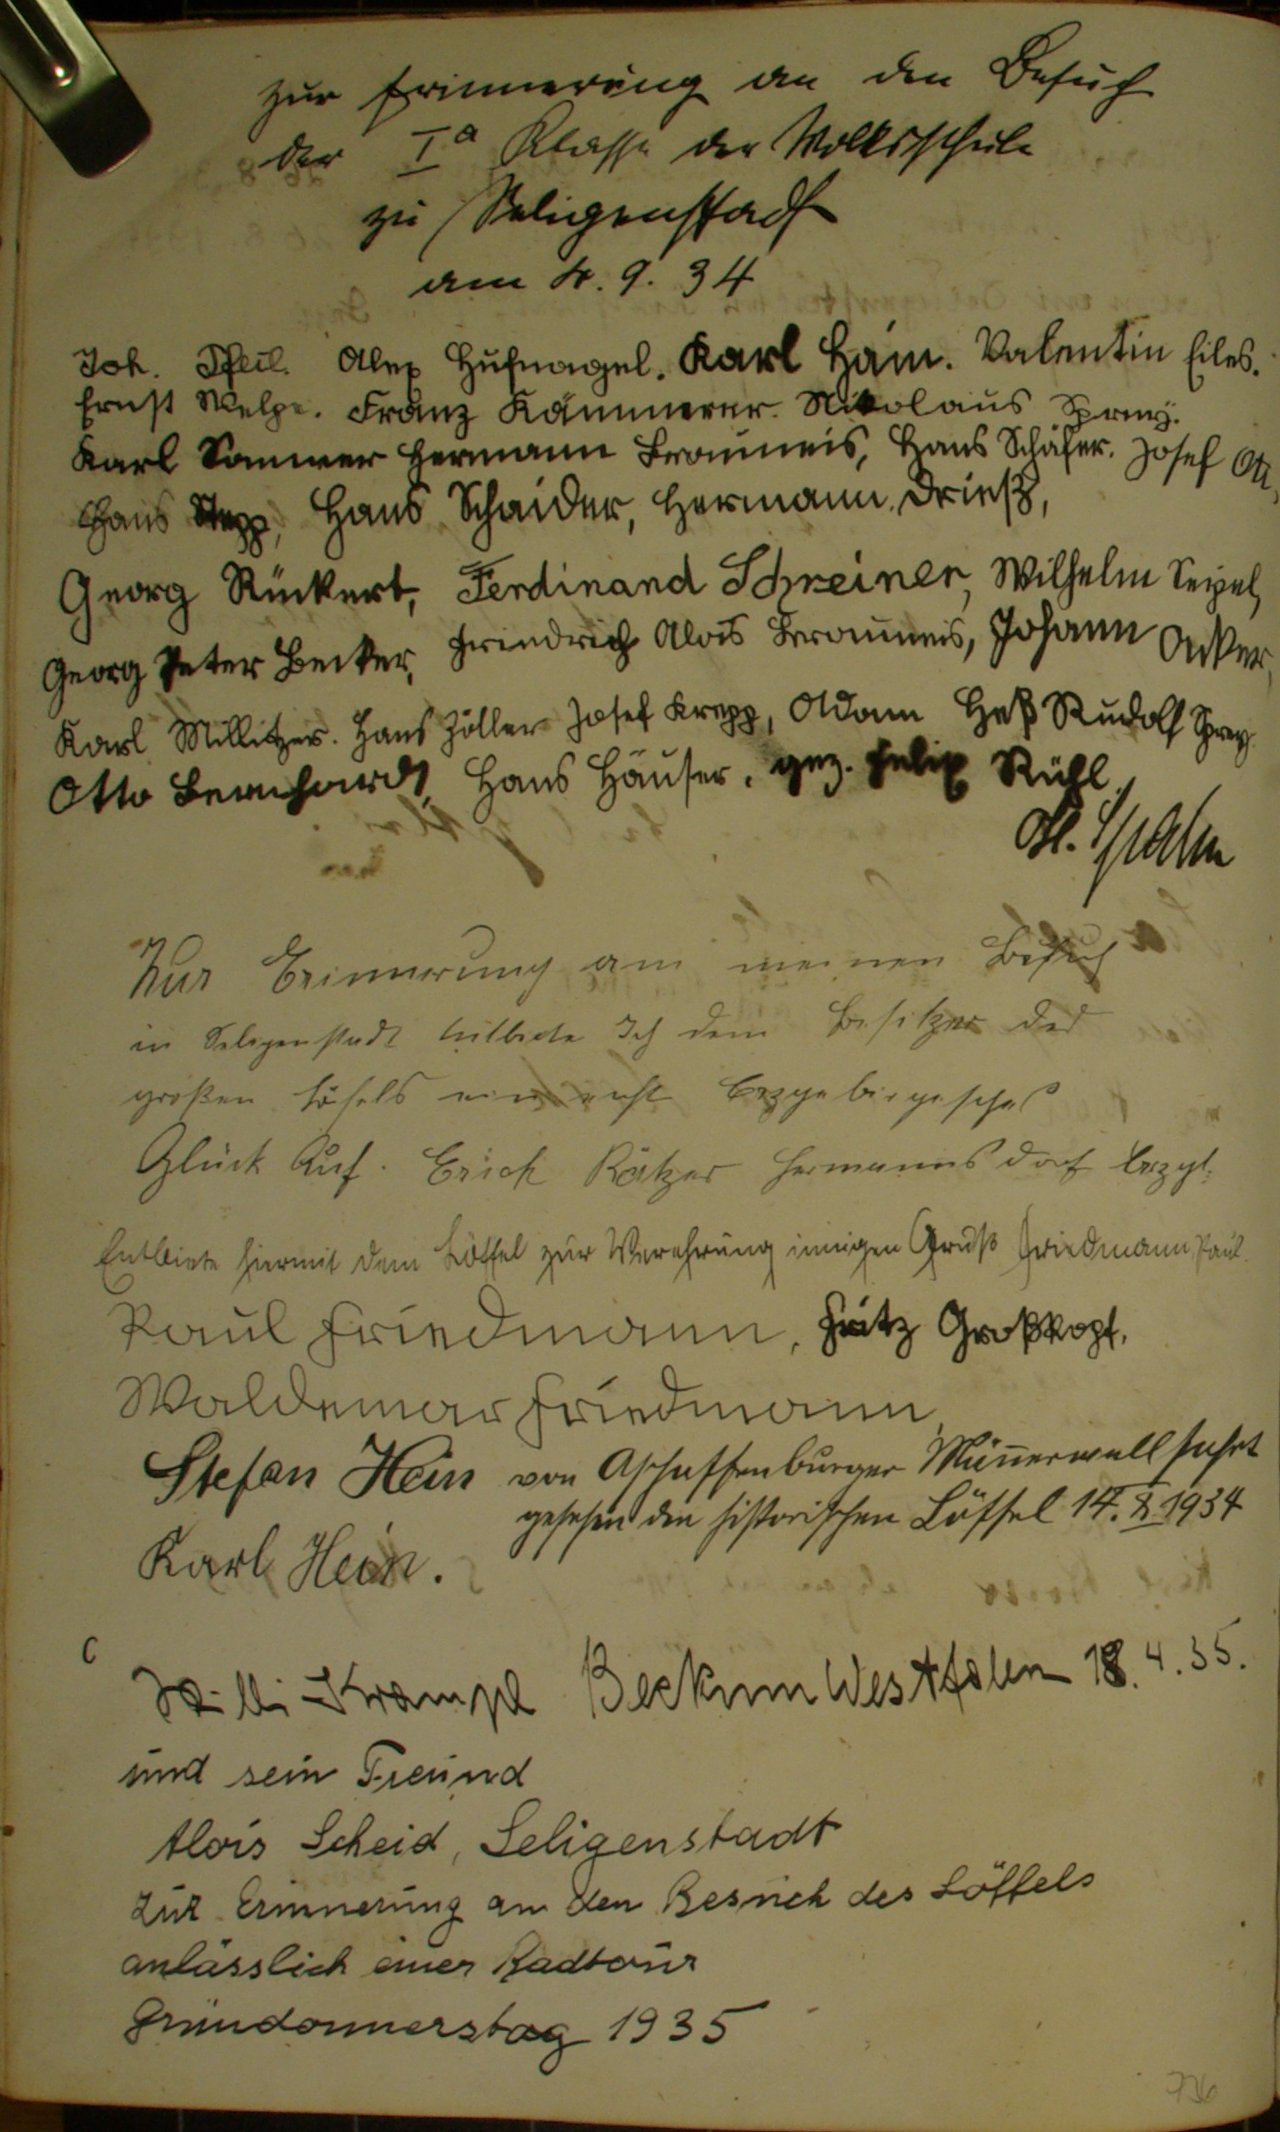 zur Erinnerung an den Besuch
der Iª Klasse der Volksschule
zu Seligenstadt
am 4. 9. 34
Joh. Pfeil. Alex Hufnagel. Karl Hain. Valentin Eiles.
Ernst Welpe. Franz Kämmerer. Nikolaus Sprey.
Karl Sommer Hermann Brauneis, Hans Schäfer. Josef Ott,
Hans Stepp, Hans Schaider, Hermann Drieß,
Georg Rückert, Ferdinand Schreiner, Wilhelm Seipel,
Georg Peter Becker, Friedrich Alois Brauneis, Johann Acker,
Karl Millitzer. Hans Zöller Josef Krepp, Adam Heß Rudolf Sprey
Otto Bernhardt, Hans Häuser, gez. Felix Rühl
Spahn
Zur Erinnerung am meinen Besuch
in Seligenstadt entbiete Ich dem Besitzer des
großen Löfels ein echt Erzgebirgisches
Glück Auf. Erich Rötzer Hermannsdorf Erzgb.
Entbiete hiermit dem Löffel zur Verehrung innigen Gruß Friedmann, Paul.
Paul Friedmann, Fritz Großkopf,
Waldemar Friedmann,
Stefan Hein von Aschaffenburger Männerwallfahrt
gesehen den historischen Löffel 14. X 1934
Karl Hein.
Willi Krampe Beckum Westfalen 18. 4. 35.
und sein Freund
Alois Scheid, Seligenstadt
zur Erinnerung an den Besuch des Löffels
anlässlich einer Radtour
Gründonnerstag 1935